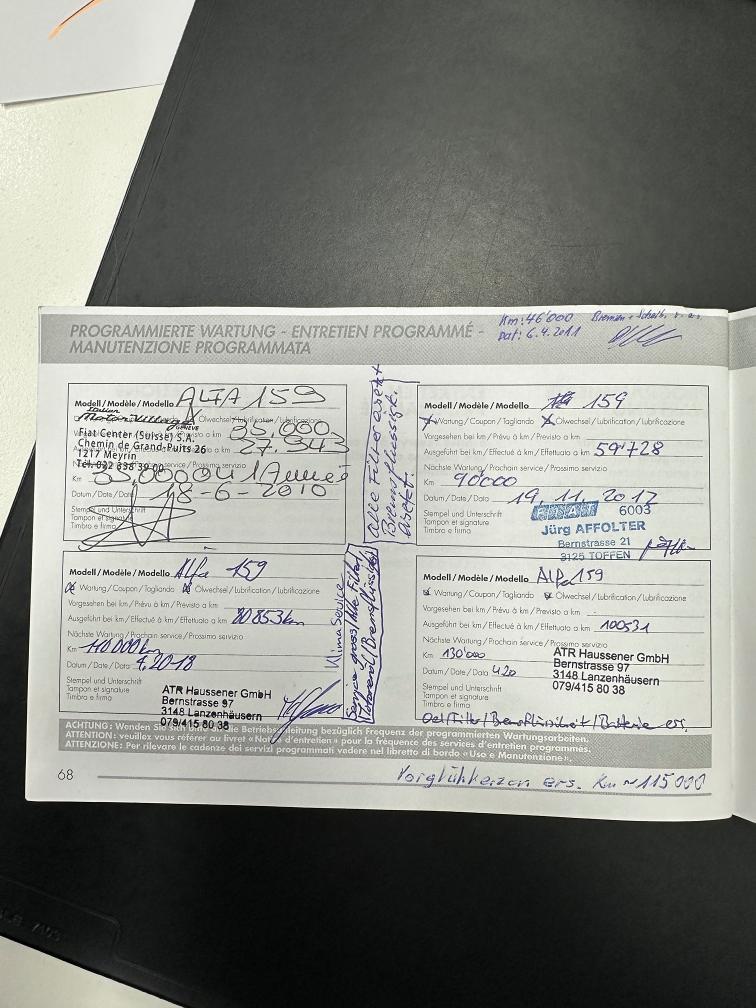 Km: 46'000
Dat: 6.4.2011
PROGRAMMIERTE WARTUNG - ENTRETIEN PROGRAMMÉ -
MANUTENZIONE PROGRAMMATA
Modell/Modèle/Modello ALFA 159
Ölwechsel/Lubrification/Lubrificazione
Fiat Center (Suisse) S.A.
Chemin de Grand-Puits 26
1217 Meyrin
Tél. 022 338 39 00
27.343
Km
Datum/Date/Data 18-6-2010
Stempel und Unterschrift
Tampon et signature
Timbro e firma
alle Filter ersetzt
Bremsflüssigk.
ersetzt.
Modell/Modèle/Modello 159
Wartung/Coupon/Tagliando Ölwechsel/Lubrification/Lubrificazione
Vorgesehen bei km/Prévu à km/Previsto a km
Ausgeführt bei km/Effectué à km/Effettuato a km 59'728
Nächste Wartung/Prochain service/Prossimo servizio
Km 90'000
Datum/Date/Data 19.11.2012
Stempel und Unterschrift
Tampon et signature
Timbro e firma
FIAT 6003
Jürg AFFOLTER
Bernstrasse 21
3125 TOFFEN
Modell/Modèle/Modello Alfa 159
Wartung/Coupon/Tagliando Ölwechsel/Lubrification/Lubrificazione
Vorgesehen bei km/Prévu à km/Previsto a km
Ausgeführt bei km/Effectué à km/Effettuato a km 80853km
Nächste Wartung/Prochain service/Prossimo servizio
Km 110'000km
Datum/Date/Data 4.2018
Stempel und Unterschrift
Tampon et signature
Timbro e firma
ATR Haussener GmbH
Bernstrasse 97
3148 Lanzenhäusern
079/415 80 38
Klima Service
Service gross/Alle Filter/
Motorenöl/Bremsflüssigk.
Modell/Modèle/Modello Alfa 159
Wartung/Coupon/Tagliando Ölwechsel/Lubrification/Lubrificazione
Vorgesehen bei km/Prévu à km/Previsto a km
Ausgeführt bei km/Effectué à km/Effettuato a km 100531
Nächste Wartung/Prochain service/Prossimo servizio
Km 130'000
Datum/Date/Data 4.20
Stempel und Unterschrift
Tampon et signature
Timbro e firma
ATR Haussener GmbH
Bernstrasse 97
3148 Lanzenhäusern
079/415 80 38
Oel/Filter/Bremsflüssikeit/Batterie ers.
ACHTUNG: Wenden Sie sich Betriebsanleitung bezüglich Frequenz der programmierten Wartungsarbeiten.
ATTENTION: veuillez vous référer au livret «Notice d'entretien» pour la fréquence des services d'entretien programmés.
ATTENZIONE: Per rilevare le cadenze dei servizi programmati vedere nel libretto di bordo «Uso e Manutenzione».
68
Vorglühkerzen ers. Km ~115'000